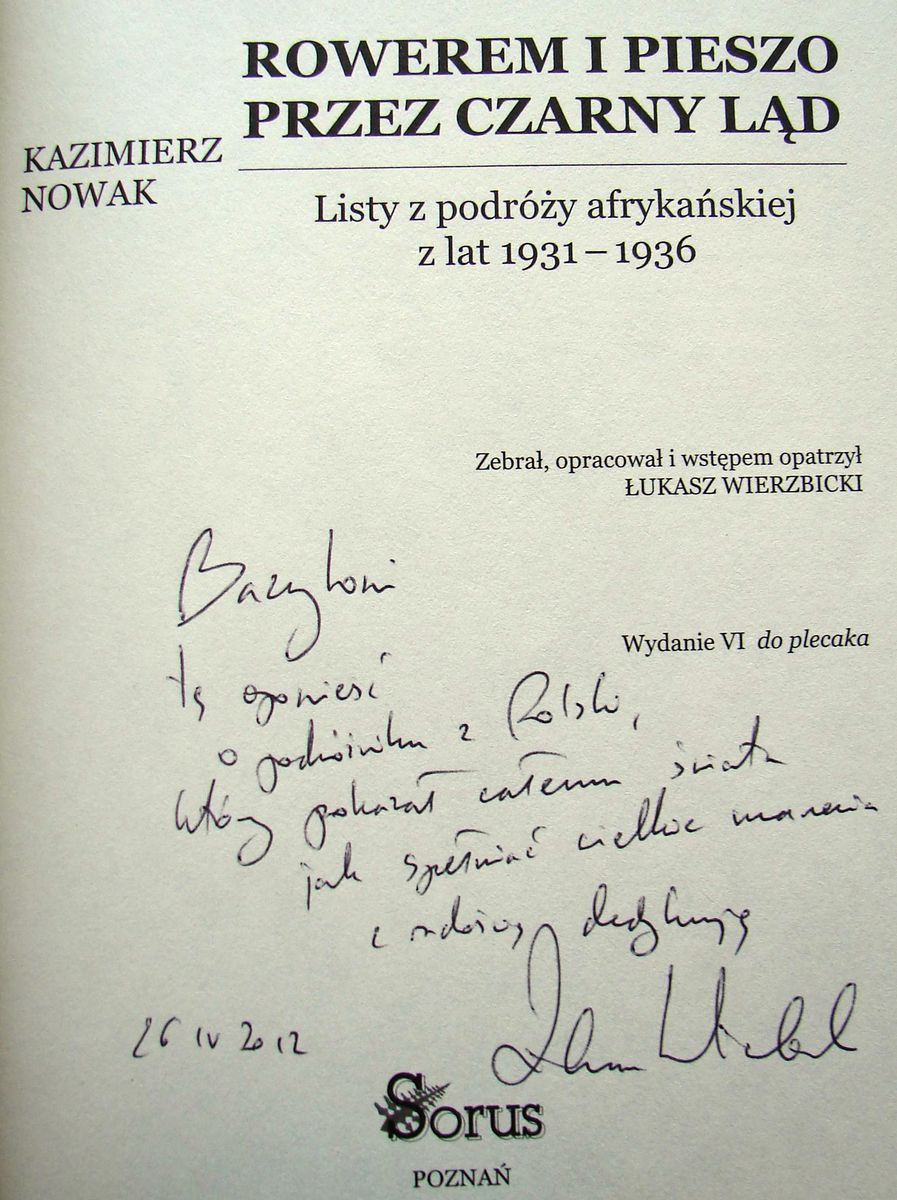 ROWEREM I PIESZO
PRZEZ CZARNY LĄD
KAZIMIERZ
NOWAK
Listy z podróży afrykańskiej
z lat 1931 – 1936
Zebrał, opracował i wstępem opatrzył
ŁUKASZ WIERZBICKI
Wydanie VI do plecaka
Bazylowi
tę opowieść
o podróżniku z Polski,
który pokazał całemu światu
jak spełniać wielkie marzenia
z radością dedykuję
26 IV 2012
Sorus
POZNAŃ